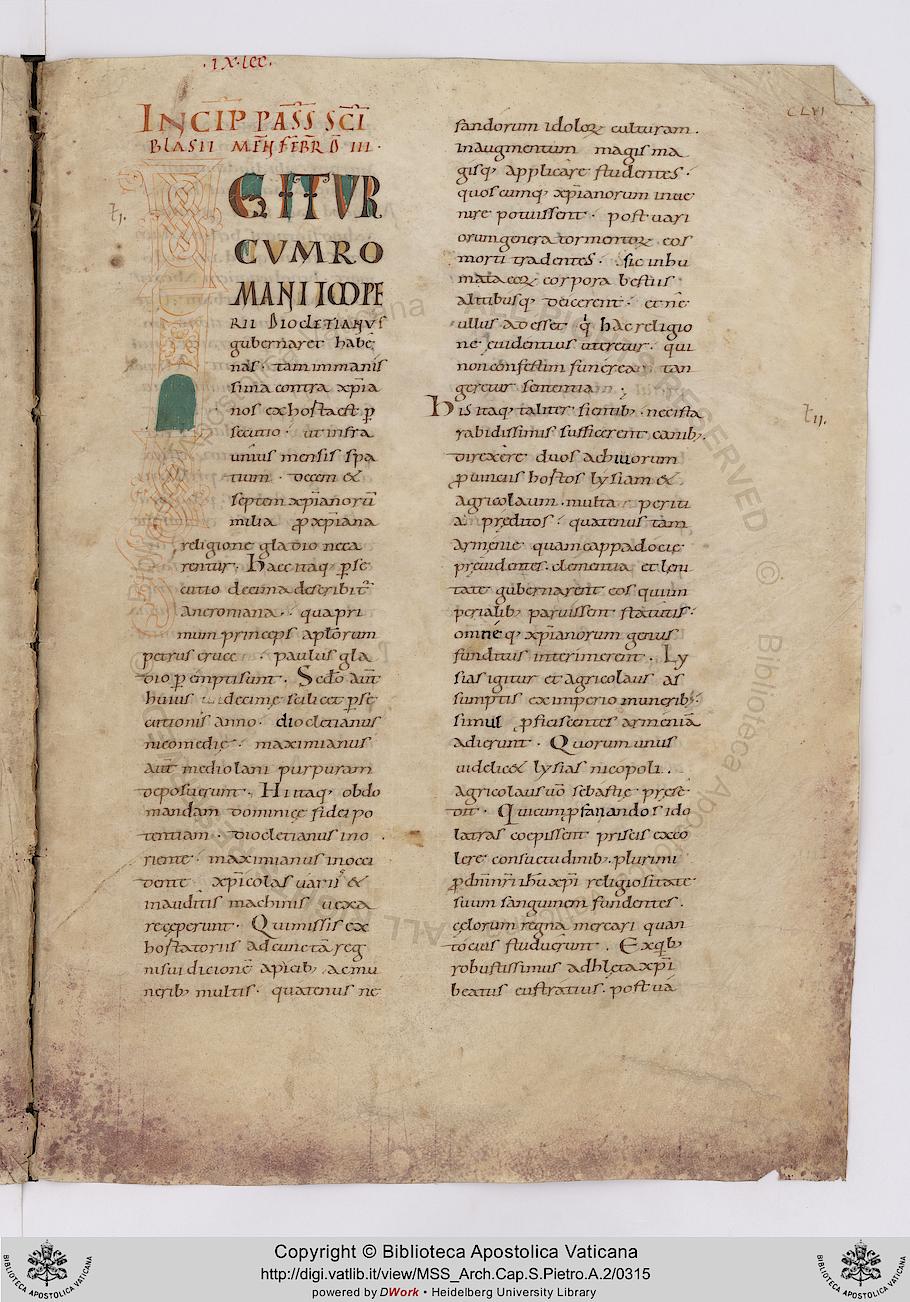 ·IX·lec·
CLVI
INCIP PASS SCI
BLASII MEN FEBR D III·
IGITUR
CUM RO
MANI IMPE
RII DIOCLETIANUS
gubernaret habe
nas· tam immanis
sima contra xpia
nos exhosta est p
secutio· ut infra
unius mensis spa
tium· decem &
septem xpianorū
milia p xpiana
religione gladio neca
rentur· Haec itaq; pse
cutio decima describit
a neroniana· qua pri
mum princeps aplorum
petrus cruce· paulus gla
dio pempti sunt· Sedo aut
huius decime scilicet pse
cutionis anno· diocletianus
nicomedię· maximianus
aut mediolani purpuram
deposuerunt· Hi itaq; obdo
mandam dominicę fidei po
tentiam· diocletianus in o
riente· maximianus in occi
dente xpicolas variis &
inauditis machinis uexa
re ceperunt· Qui missis ex
hostatoriis ad cuncta reg
ni sui dicione apicib; ac mu
nerib; multis· quatenus ne
fandorum idolorum culturam·
in augmentum magis ma
gisq; applicare studentes·
quoscumq; xpianorum inue
nire potuissent· post uari
orum genera tormentorum eos
morti tradentes· sic inhu
mata eorum corpora bestiis
alitibusq; deicerent· et ne
ullus adesset q hac religio
ne euidentius uteretur· qui
non confestim funerea tan
geretur sententia·
t II·
His itaq; taliter sientib; necista
rabidissimis sufficerent canib;·
direxere duos ad hiuiorum
puincias hostos lysiam &
agricolaum· multa periti
a preditos· quatenus tam
armenie quam cappadocię
presidentes· clementia et leni
tate gubernarent eos qui im
perialib; paruissent statutis·
omneq; xpianorum genus
funditus interimerent· Ly
sias igitur et agricolaus as
sumptis ex imperio munerib;·
simul pficiscentes armeniā
adierunt· Quorum unus
uidelic& lysias nicopoli·
agricolaus uo sebastię prese
dit· Qui cum pfanandos ido
latras coepissent priscis exco
lere consuetudinib; plurimi
p dni nri ihu xpi religiositate
suum sanguinem fundentes·
celorum regna mercari quan
tocius studuerunt· Ex quib;
robustissimus adhleta xpi
beatus eustratius· post ua
Copyright © Biblioteca Apostolica Vaticana
http://digi.vatlib.it/view/MSS_Arch.Cap.S.Pietro.A.2/0315
powered by DWork • Heidelberg University Library